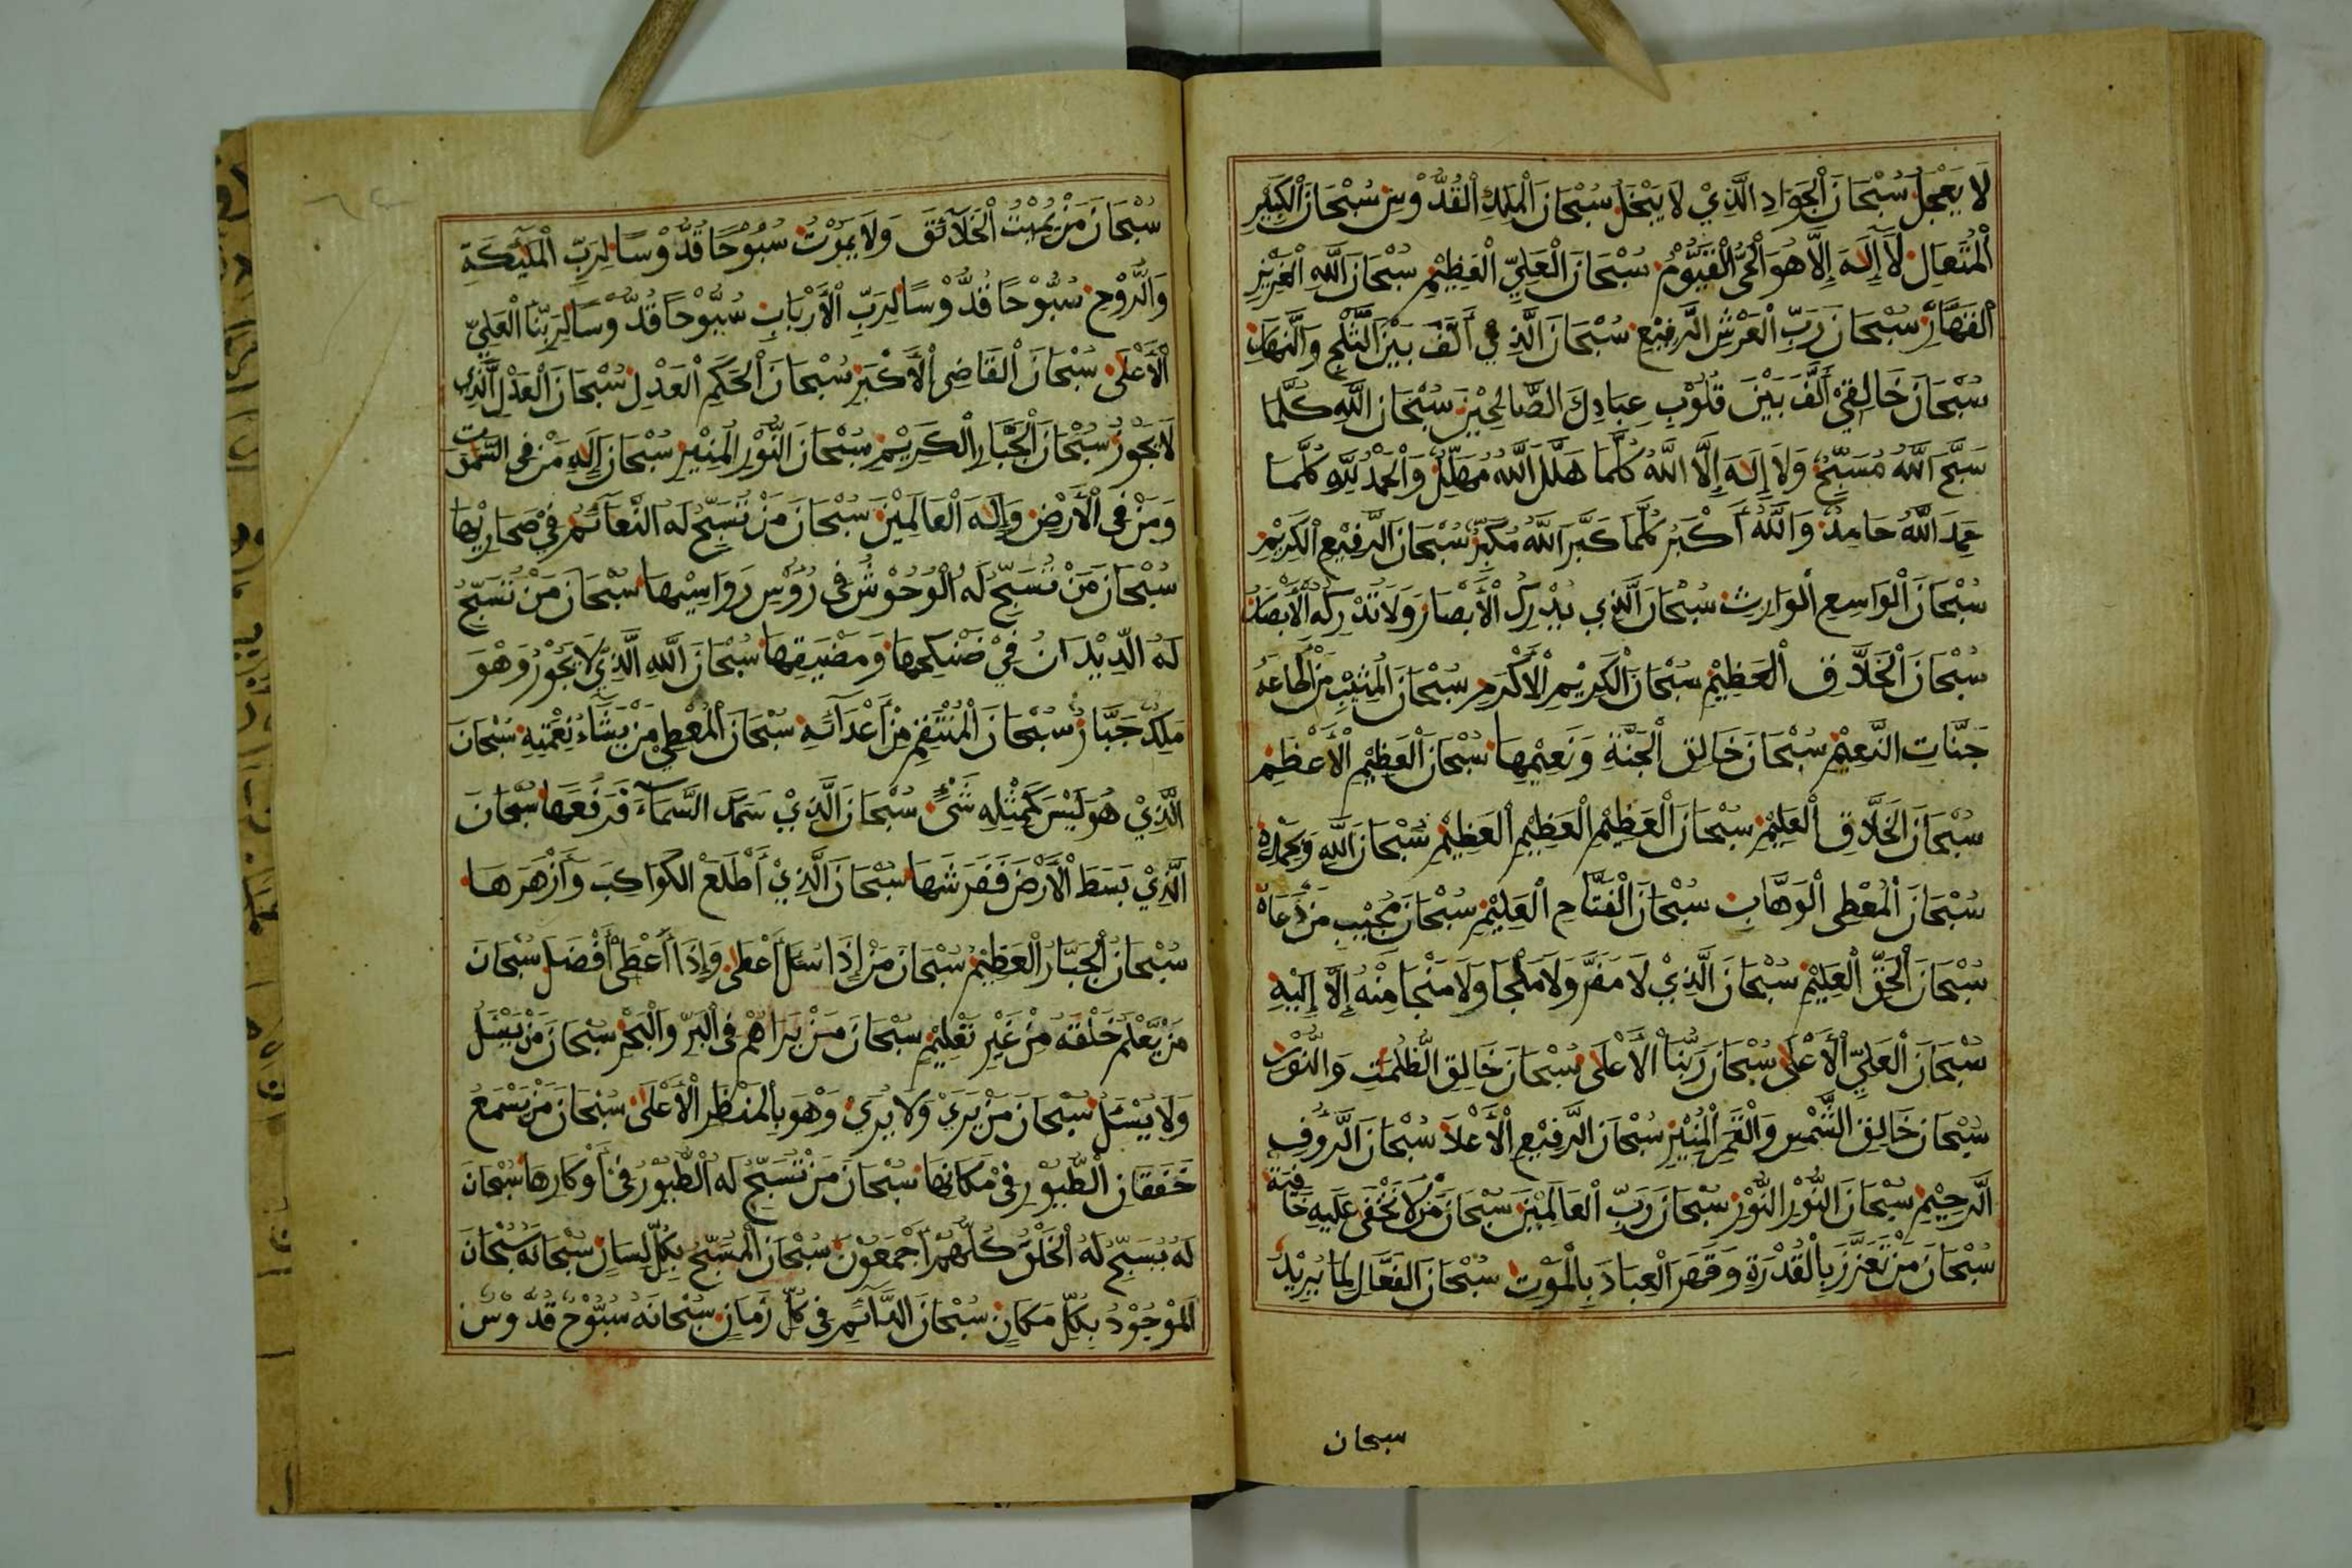 لَا يَعْجَلُ سُبْحَانَ الْجَوَادِ الَّذِيْ لَا يَبْخَلُ سُبْحَانَ الْمَلِكِ الْقُدُّوْسِ سُبْحَانَ الْكَبِيْرِ
الْمُتَعَالِ لَا إِلَهَ إِلَّا هُوَ الْحَيُّ الْقَيُّوْمُ سُبْحَانَ الْعَلِيِّ الْعَظِيْمِ سُبْحَانَ اللَّهِ الْعَزِيْزِ
الْقَهَّارِ سُبْحَانَ رَبِّ الْعَرْشِ الرَّفِيْعِ سُبْحَانَ الَّذِيْ أَلَّفَ بَيْنَ الثَّلْجِ وَالنَّهَارِ
سُبْحَانَ خَالِقِيْ أَلَّفَ بَيْنَ قُلُوْبِ عِبَادِكَ الصَّالِحِيْنَ سُبْحَانَ اللَّهِ كُلَّمَا
سَبَّحَ اللَّهَ مُسَبِّحٌ وَلَا إِلَهَ إِلَّا اللَّهُ كُلَّمَا هَلَّلَ اللَّهَ مُهَلِّلٌ وَالْحَمْدُ لِلَّهِ كُلَّمَا
حَمِدَ اللَّهَ حَامِدٌ وَاللَّهُ أَكْبَرُ كُلَّمَا كَبَّرَ اللَّهَ مُكَبِّرٌ سُبْحَانَ الرَّفِيْعِ الْكَرِيْمِ
سُبْحَانَ الْوَاسِعِ الْوَارِثِ سُبْحَانَ الَّذِي يُدْرِكُ الْأَبْصَارَ وَلَا تُدْرِكُهُ الْأَبْصَارُ
سُبْحَانَ الْخَلَّاقِ الْعَظِيْمِ سُبْحَانَ الْكَرِيْمِ الْأَكْرَمِ سُبْحَانَ الْمُثِيْبِ مَنْ أَطَاعَهُ
جَنَّاتِ النَّعِيْمِ سُبْحَانَ خَالِقِ الْجَنَّةِ وَنَعِيْمِهَا سُبْحَانَ الْعَظِيْمِ الْأَعْظَمِ
سُبْحَانَ الْخَلَّاقِ الْعَلِيْمِ سُبْحَانَ الْعَظِيْمِ الْعَظِيْمِ الْعَظِيْمِ سُبْحَانَ اللَّهِ وَبِحَمْدِهِ
سُبْحَانَ الْمُعْطِى الْوَهَّابِ سُبْحَانَ الْفَتَّاحِ الْعَلِيْمِ سُبْحَانَ مُجِيْبِ مَنْ دَعَاهُ
سُبْحَانَ الْحَقِّ الْعَلِيْمِ سُبْحَانَ الَّذِيْ لَا مَفَرَّ وَلَا مَلْجَا وَلَا مَنْجَا مِنْهُ إِلَّا إِلَيْهِ
سُبْحَانَ الْعَلِيِّ الْأَعْلَى سُبْحَانَ رَبِّنَا الْأَعْلَى سُبْحَانَ خَالِقِ الظُّلُمَتِ وَالنُّوْرِ
سُبْحَانَ خَالِقِ الشَّمْسِ وَالْقَمَرِ الْمُنِيْرِ سُبْحَانَ الرَّفِيْعِ الْأَعْلَا سُبْحَانَ الرَّءُوفِ
الرَّحِيْمِ سُبْحَانَ النُّوْرِ النُّوْرِ سُبْحَانَ رَبِّ الْعَالَمِيْنَ سُبْحَانَ مَنْ لَا تَخْفَى عَلَيْهِ خَافِيَةٌ
سُبْحَانَ مَنْ تَعَزَّزَ بِالْقُدْرَةِ وَقَهَرَ الْعِبَادَ بِالْمَوْتِ سُبْحَانَ الْفَعَّالِ لِمَا يُرِيْدُ
سبحان
٦٤
سُبْحَانَ مَنْ يُمِيْتُ الْخَلَائِقَ وَلَا يَمُوْتُ سُبُّوْحًا قُدُّوْسًا لِرَبِّ الْمَلَئِكَةِ
وَالرُّوْحِ سُبُّوْحًا قُدُّوْسًا لِرَبِّ الْأَرْبَابِ سُبُّوْحًا قُدُّوْسًا لِرَبِّنَا الْعَلِيِّ
الْأَعْلَى سُبْحَانَ الْقَاضِى الْأَكْبَرِ سُبْحَانَ الْحَكَمِ الْعَدْلِ سُبْحَانَ الْعَدْلِ الَّذِي
لَا يَجُوْرُ سُبْحَانَ الْجَبَّارِ الْكَرِيْمِ سُبْحَانَ النُّوْرِ الْمُنِيْرِ سُبْحَانَ إِلَهِ مَنْ فِى السَّمَوَتِ
وَمَنْ فِى الْأَرْضِ وَإِلَهَ الْعَالَمِيْنَ سُبْحَانَ مَنْ تُسَبِّحُ لَهُ النَّعَائِمُ فِيْ صَحَارِيْهَا
سُبْحَانَ مَنْ تُسَبِّحُ لَهُ الْوُحُوْشُ فِى رُؤُسِ رَوَاسِيْهَا سُبْحَانَ مَنْ تُسَبِّحُ
لَهُ الدِّيْدَانُ فِيْ ضَنْكِهَا وَمَضِيْقِهَا سُبْحَانَ اللَّهِ الَّذِيْ لَا يَجُوْرُ وَهُوَ
مَلِكٌ جَبَّارٌ سُبْحَانَ الْمُنْتَقِمِ مِنْ أَعْدَآئِهِ سُبْحَانَ الْمُعْطِيْ مَنْ يَشَاءُ نِعْمَتِهِ سُبْحَانَ
الَّذِيْ هُوَ لَيْسَ كَمِثْلِهِ شَىْءٌ سُبْحَانَ الَّذِيْ سَمَكَ السَّمَآءَ فَرَفَعَهَا سُبْحَانَ
الَّذِيْ بَسَطَ الْأَرْضَ فَفَرَشَهَا سُبْحَانَ الَّذِيْ أَطْلَعَ الْكَوَاكِبَ وَأَزْهَرَهَا
سُبْحَانَ الْجَبَّارِ الْعَظِيْمِ سُبْحَانَ مَنْ إِذَا سُئِلَ أَعْطَى وَإِذَا أَعْطَى أَفْضَلَ سُبْحَانَ
مَنْ يَعْلَمُ خَلْقَهُ مِنْ غَيْرِ تَعْلِيْمٍ سُبْحَانَ مَنْ يَرَاهُمْ فِى الْبَرِّ وَالْبَحْرِ سُبْحَانَ مَنْ يَسْئَلُ
وَلَا يُسْئَلُ سُبْحَانَ مَنْ يَرَيْ وَلَا يُرَيْ وَهُوَ بِالْمَنْظَرِ الْأَعْلَى سُبْحَانَ مَنْ يَسْمَعُ
خَفَقَانَ الطُّيُوْرِ فِيْ مَكَانِهَا سُبْحَانَ مَنْ تُسَبِّحُ لَهُ الطُّيُوْرُ فِيْ أَوْكَارِهَا سُبْحَانَ
لَهُ يُسَبِّحُ لَهُ الْخَلْقُ كُلُّهُمْ أَجْمَعُوْنَ سُبْحَانَ الْمُسَبَّحُ بِكُلِّ لِسَانٍ سُبْحَانَهُ سُبْحَانَ
الْمَوْجُوْدُ بِكُلِّ مَكَانٍ سُبْحَانَ الدَّائِمِ فِى كُلِّ زَمَانٍ سُبْحَانَهُ سُبُّوْحٌ قُدُّوْسٌ